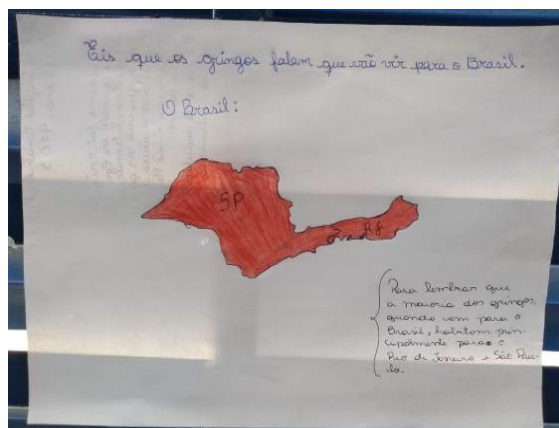 Eis que os gringos falam que vão vir para o Brasil.
O Brasil:
SP
RJ
Para lembrar que
a maioria dos gringos,
quando vem para o
Brasil, habitam prin-
cipalmente para o
Rio de Janeiro e São Pau-
lo.